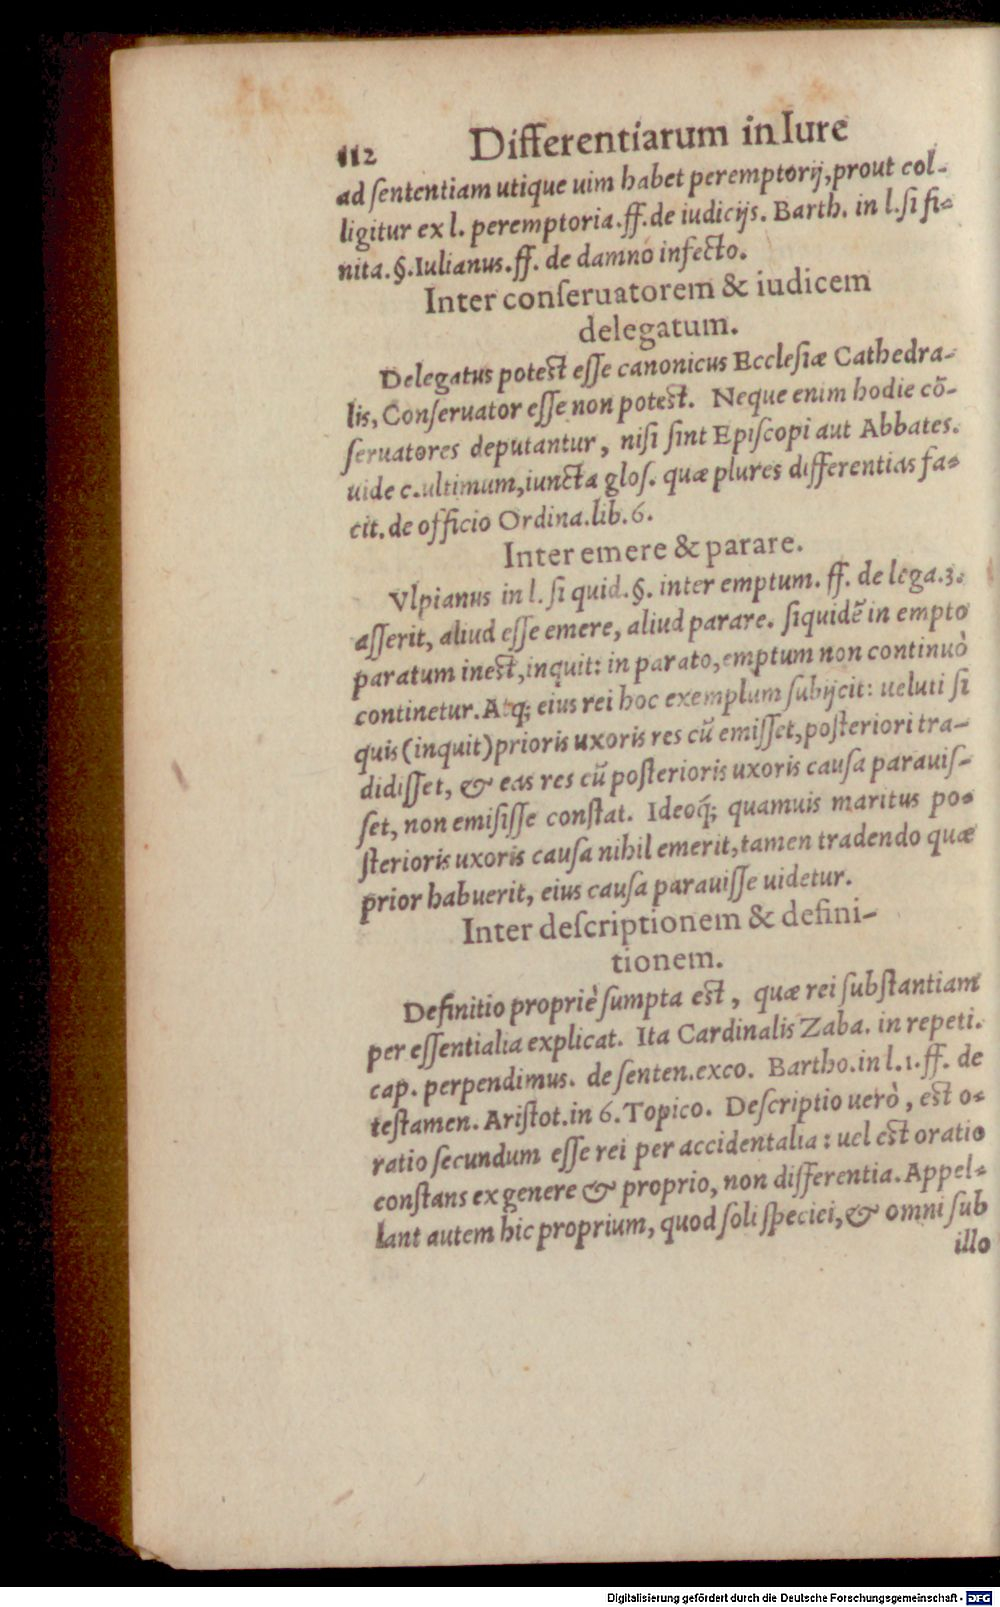 112 Differentiarum in Iure
ad ſententiam utique uim habet peremptorij, prout col-
ligitur ex l. peremptoria. ff. de iudicijs. Barth. in l. ſi fi-
nita. §. Iulianus. ff. de damno infecto.
Inter conſeruatorem & iudicem
delegatum.
Delegatus potest eſſe canonicus Eccleſiæ Cathedra-
lis, Conſeruator eſſe non potest. Neque enim hodie cō-
ſeruatores deputantur, niſi ſint Epiſcopi aut Abbates.
uide c. ultimum, iuncta gloſ. quæ plures differentias fa-
cit. de officio Ordina. lib. 6.
Inter emere & parare.
Vlpianus in l. ſi quid. §. inter emptum. ff. de lega. 3.
aſſerit, aliud eſſe emere, aliud parare. ſiquidē in empto
paratum inest, inquit: in parato, emptum non continuò
continetur. Atq; eius rei hoc exemplum ſubijcit: ueluti ſi
quis (inquit) prioris uxoris res cū emiſſet, poſteriori tra-
didiſſet, & eas res cū poſterioris uxoris cauſa parauiſ-
ſet, non emiſiſſe conſtat. Ideoq́; quamuis maritus po-
ſterioris uxoris cauſa nihil emerit, tamen tradendo quæ
prior habuerit, eius cauſa parauiſſe uidetur.
Inter deſcriptionem & defini-
tionem.
Definitio propriè ſumpta est, quæ rei ſubſtantiam
per eſſentialia explicat. Ita Cardinalis Zaba. in repeti.
cap. perpendimus. de ſenten. exco. Bartho. in l. 1. ff. de
teſtamen. Ariſtot. in 6. Topico. Deſcriptio uerò, est o-
ratio ſecundum eſſe rei per accidentalia: uel est oratio
conſtans ex genere & proprio, non differentia. Appel-
lant autem hic proprium, quod ſoli ſpeciei, & omni ſub
illo
Digitalisierung gefördert durch die Deutsche Forschungsgemeinschaft - DFG